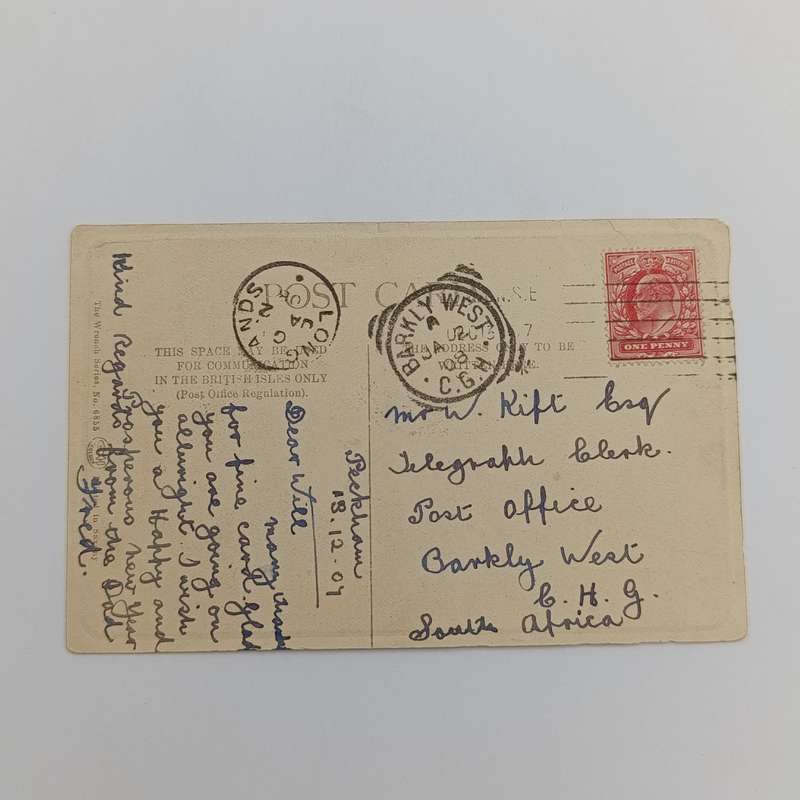 POST CA
THIS SPACE MAY BE USED
FOR COMMUNICATION
IN THE BRITISH ISLES ONLY
(Post Office Regulation).
THE ADDRESS ONLY TO BE
The Wrench Series, No. 6855
LONG
ANDS
JA
BARKLY WEST
A
JA
8
C.G.H
S.E
7
ONE PENNY
Mr W. Kift Esq
Telegraph Clerk.
Post Office
Barkly West
C. H. G.
South Africa
Peckham
18.12.07
Dear Will
many thanks
for fine card glad
you are going on
allright I wish
you a Happy and
Prosperous new Year
Kind Regards from the Dad
Fred.